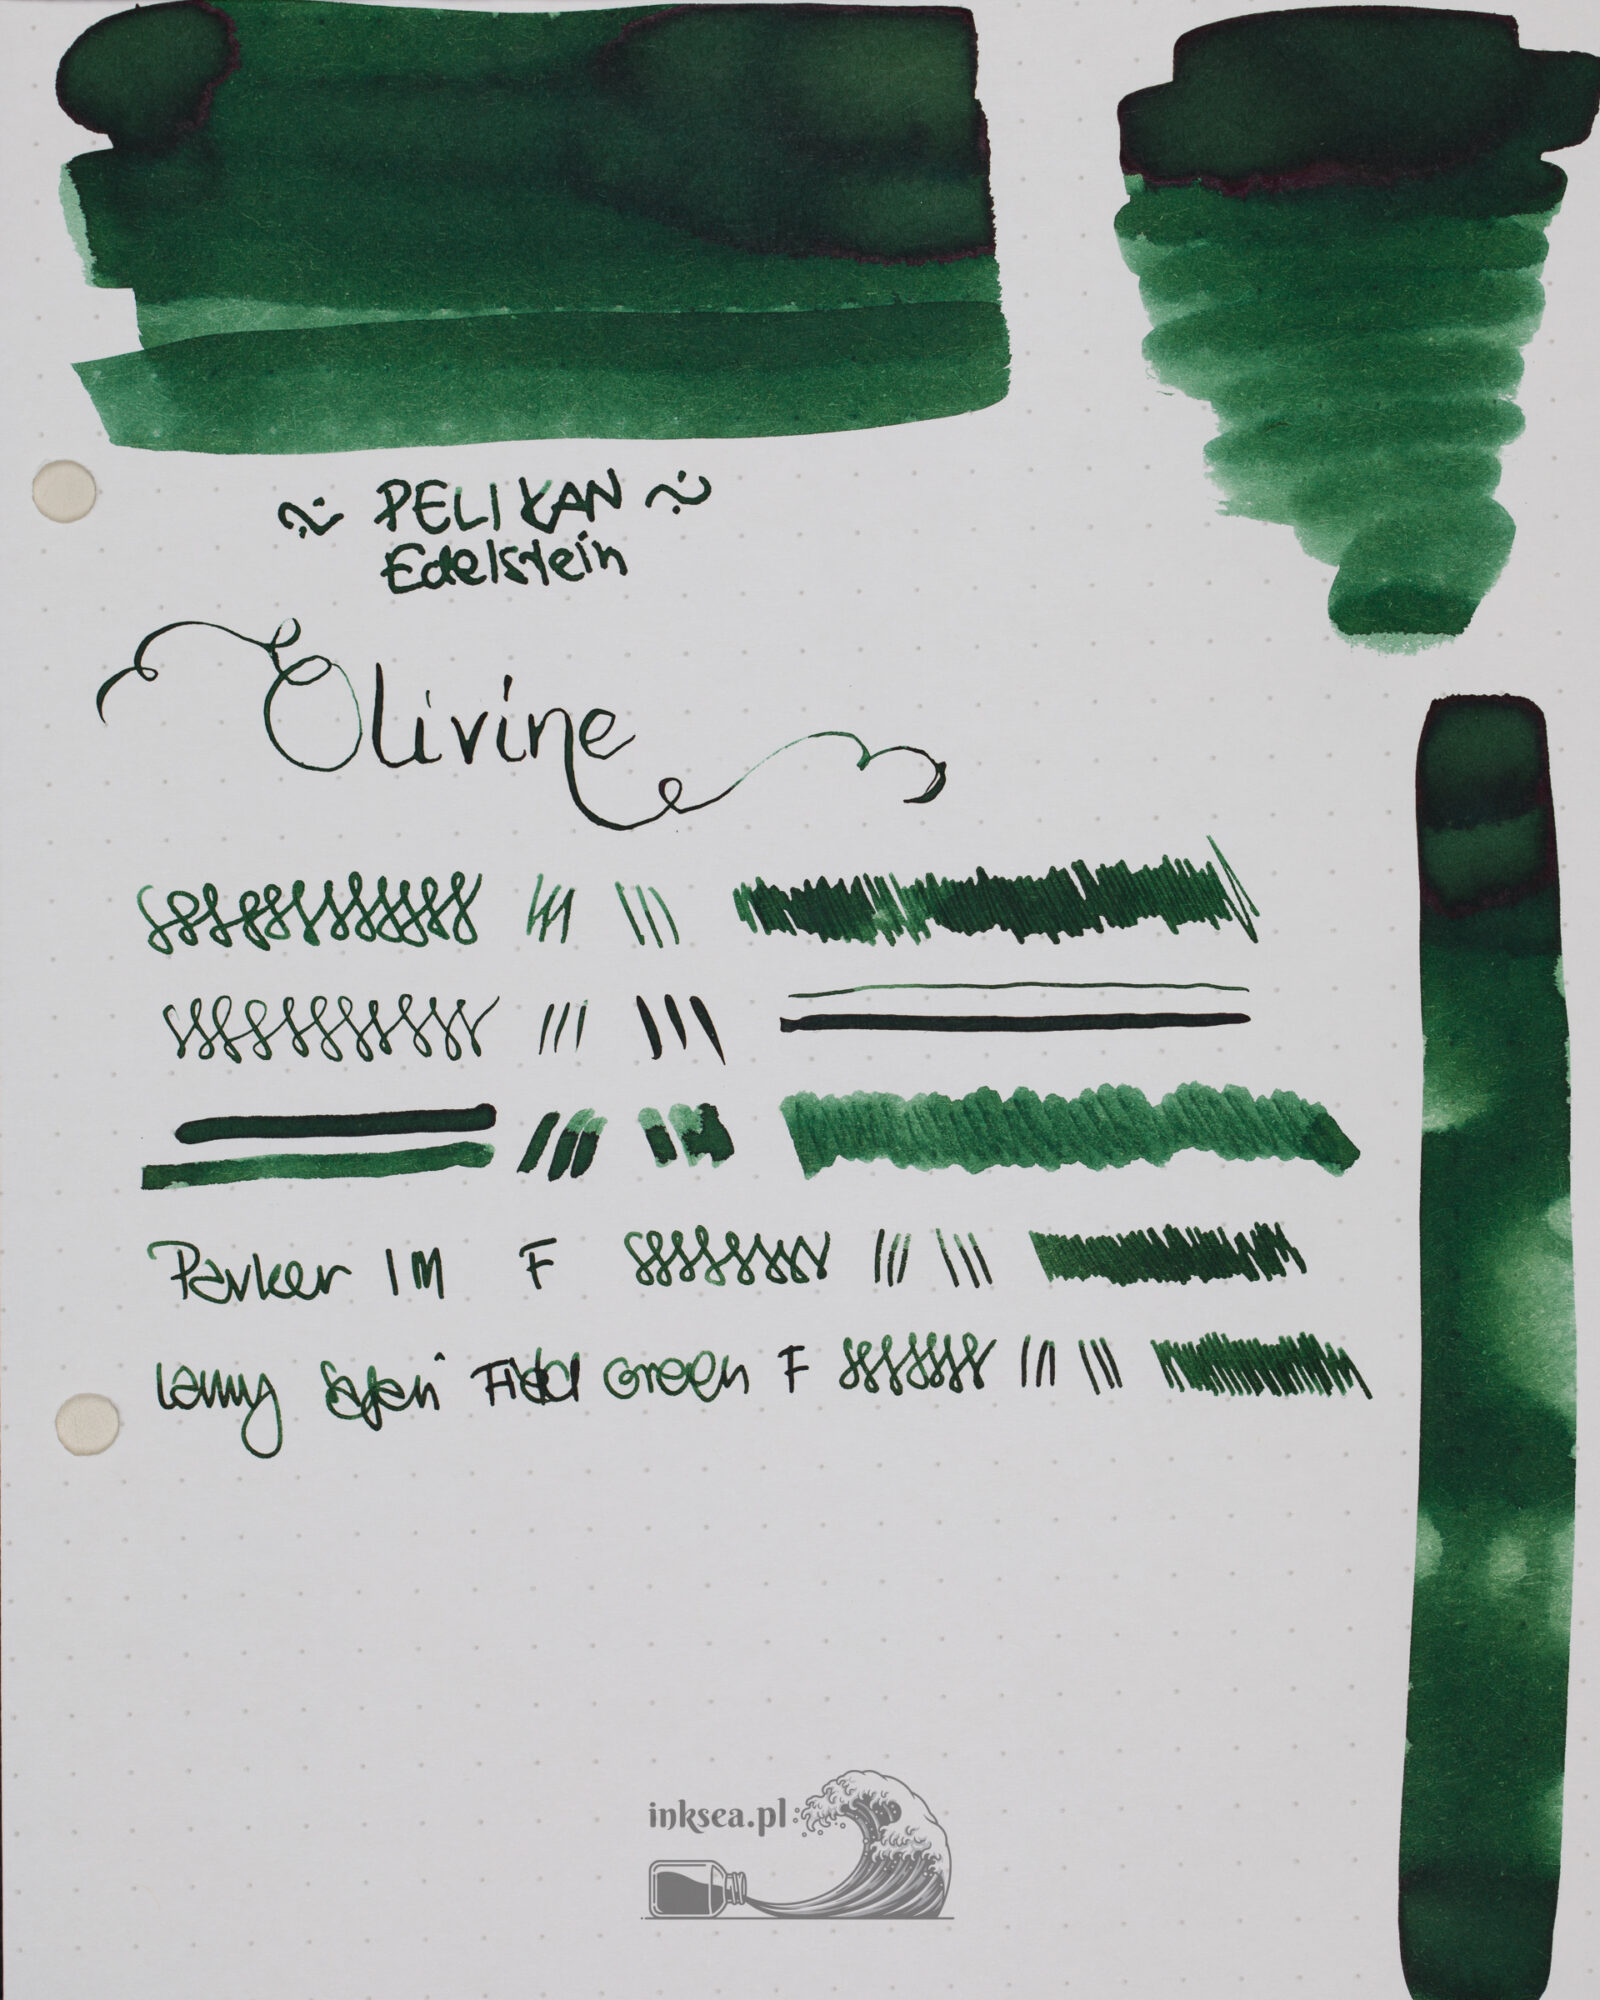 PELIKAN
Edelstein
Olivine
Parker IM F
Lamy Safari Field Green F
inksea.pl